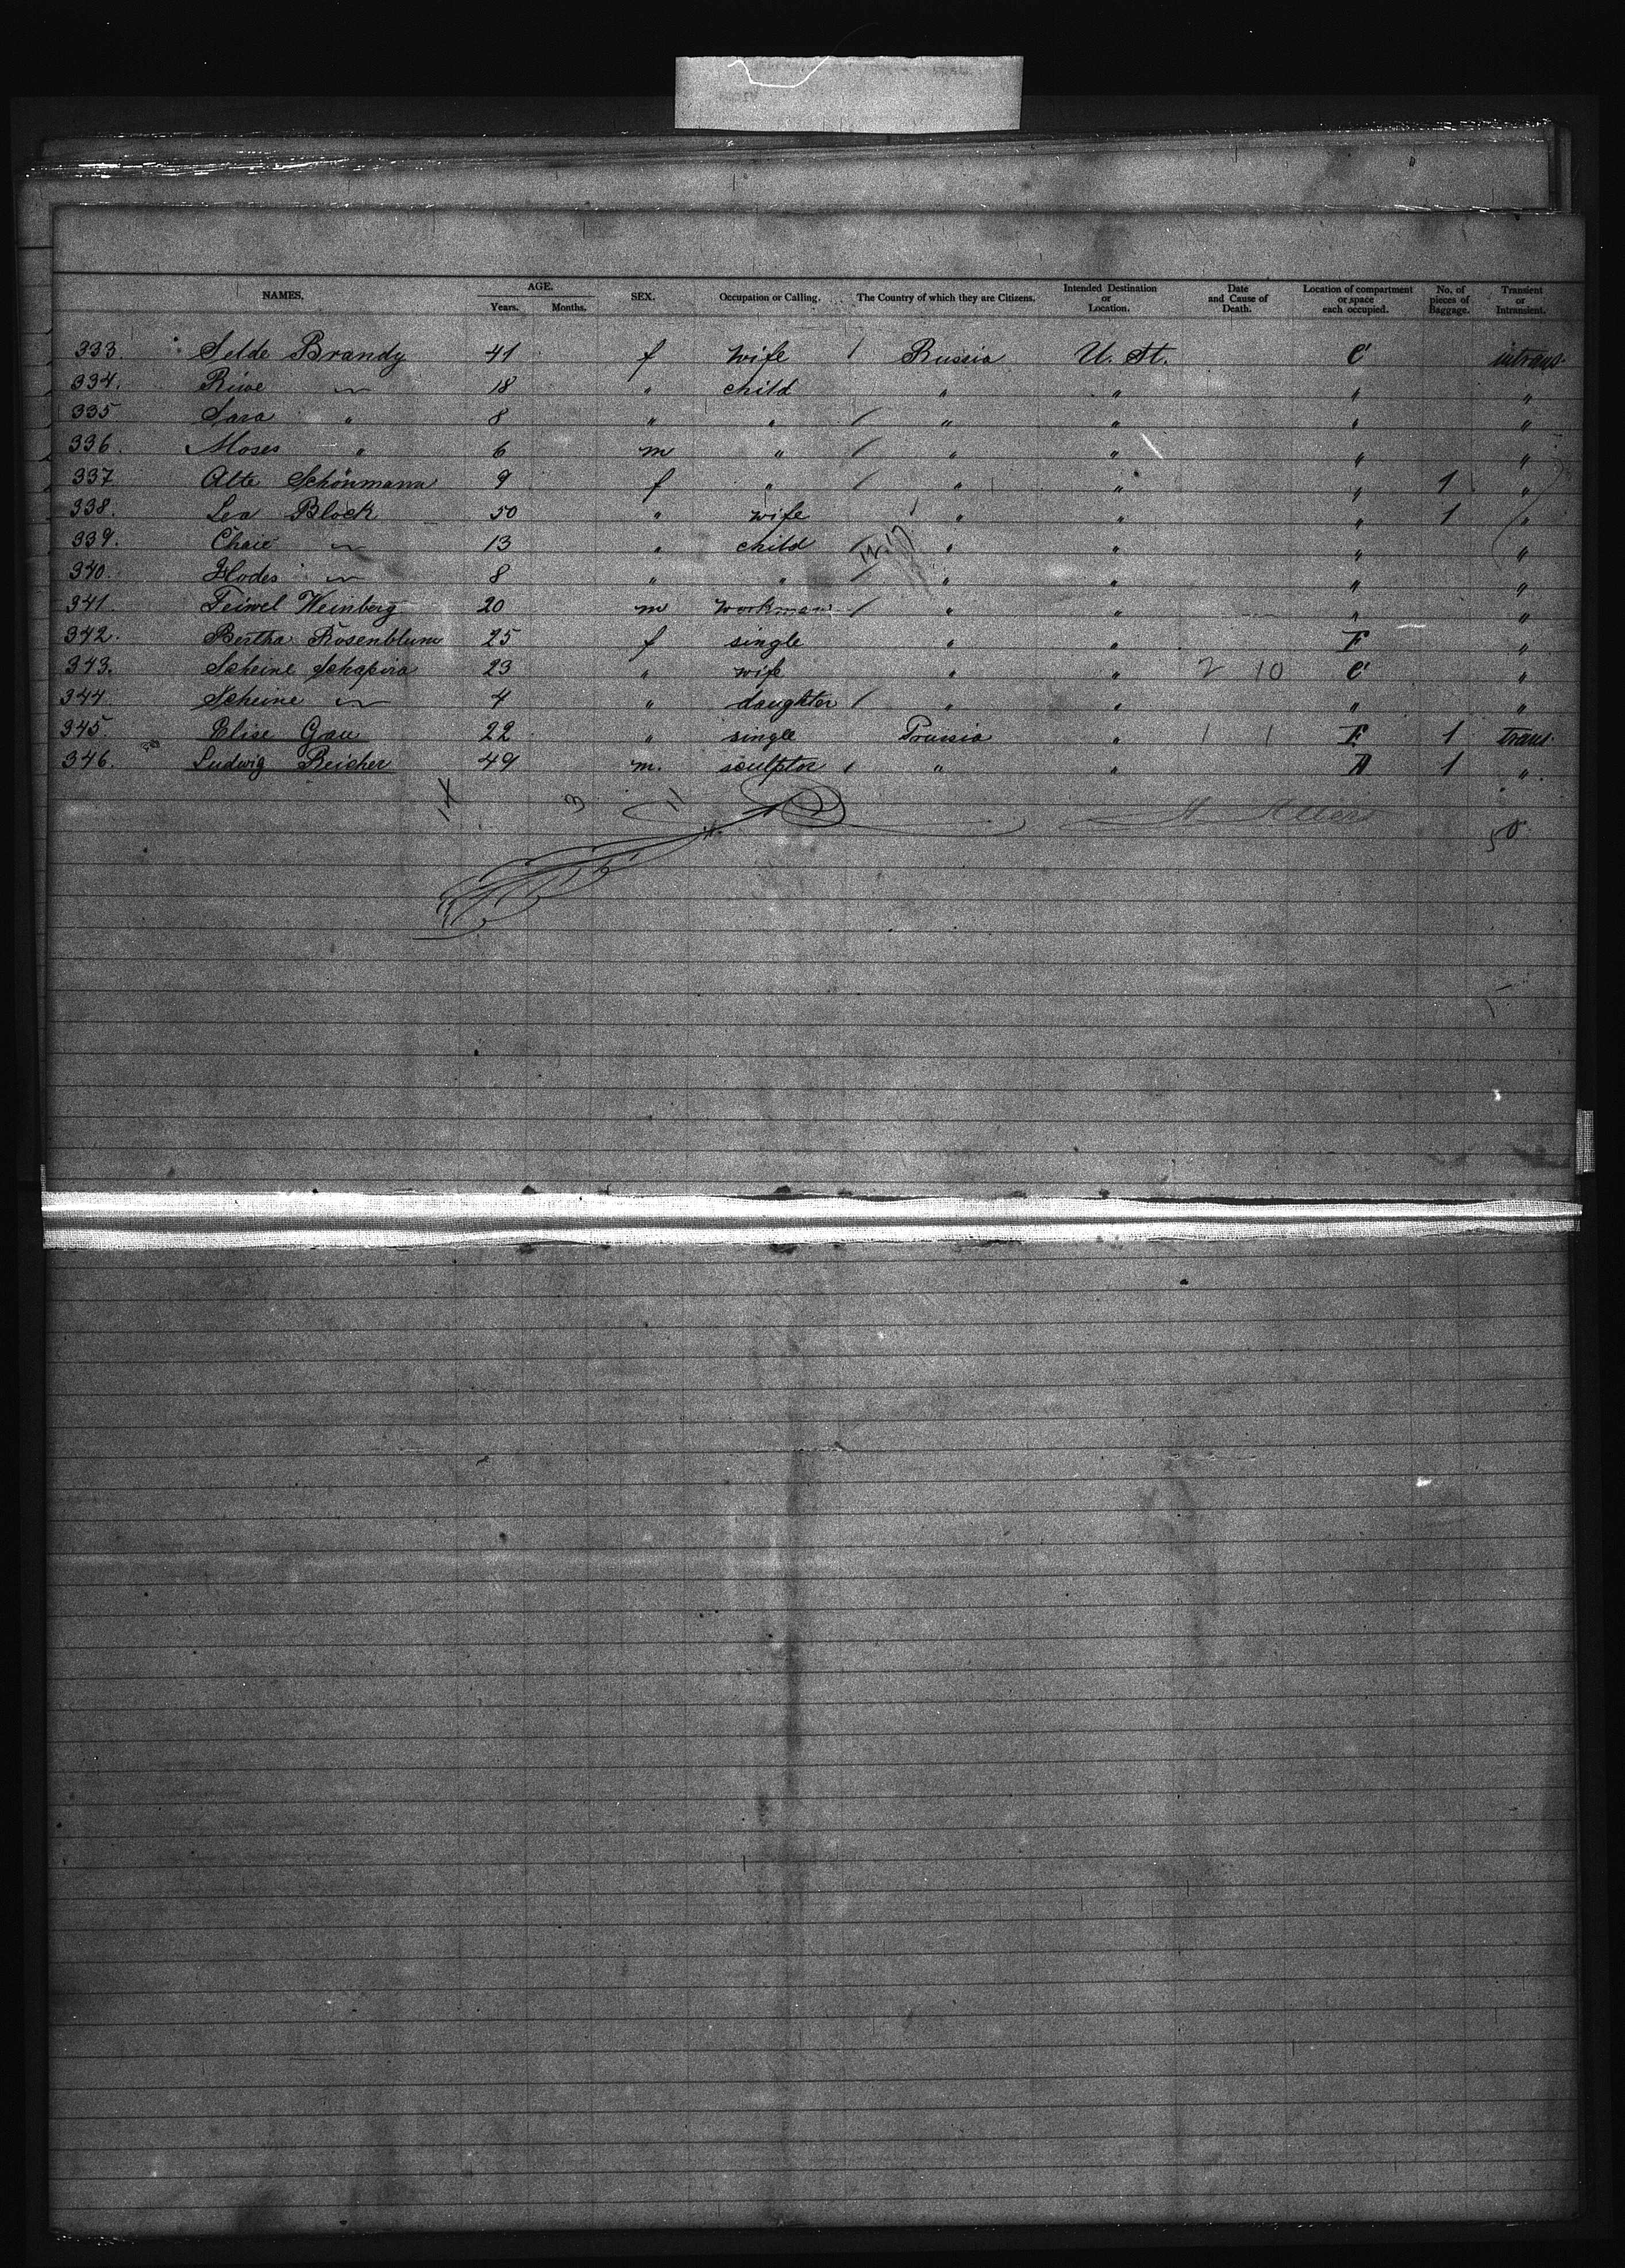 NAMES. AGE. Years. Months. SEX. Occupation or Calling. The Country of which they are Citizens. Intended Destination or Location. Date and Cause of Death. Location of compartment or space each occupied. No. of pieces of Baggage. Transient or Intransient.
333. Selde Brandy 41 f wife / Russia U. St. C intrans.
334. Riwe " 18 " child " " " "
335 Sara " 8 " " / " " " "
336. Moses " 6 m " / " " " "
337 Alte Schönmann 9 f " / " " " 1 "
338. Lea Block 50 " wife / " " " 1 "
339. Chaie " 13 " child / " " " "
340. Hodes " 8 " " / " " " "
341. Feiwel Weinberg 20 m workman / " " " "
342. Bertha Rosenblum 25 f single " " F "
343. Scheine Schapira 23 " wife " " 2 10 C "
344. Scheine " 4 " daughter / " " " "
345. Elise Gau 22 " single Prussia " 1 1 F. 1 trans.
346. Ludwig Reicher 49 m. sculptor / " " A 1 "
3 11